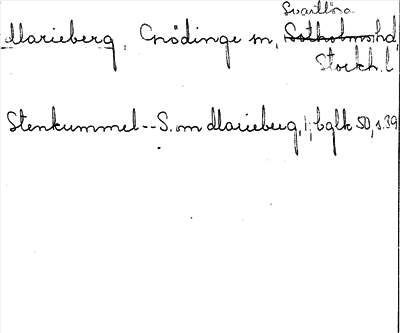 Svartlösa
Marieberg, Grödinge sn, Sotholms hd,
Stockh. l.
Stenkummel--S. om Marieberg, 1, bglk 50, s. 39